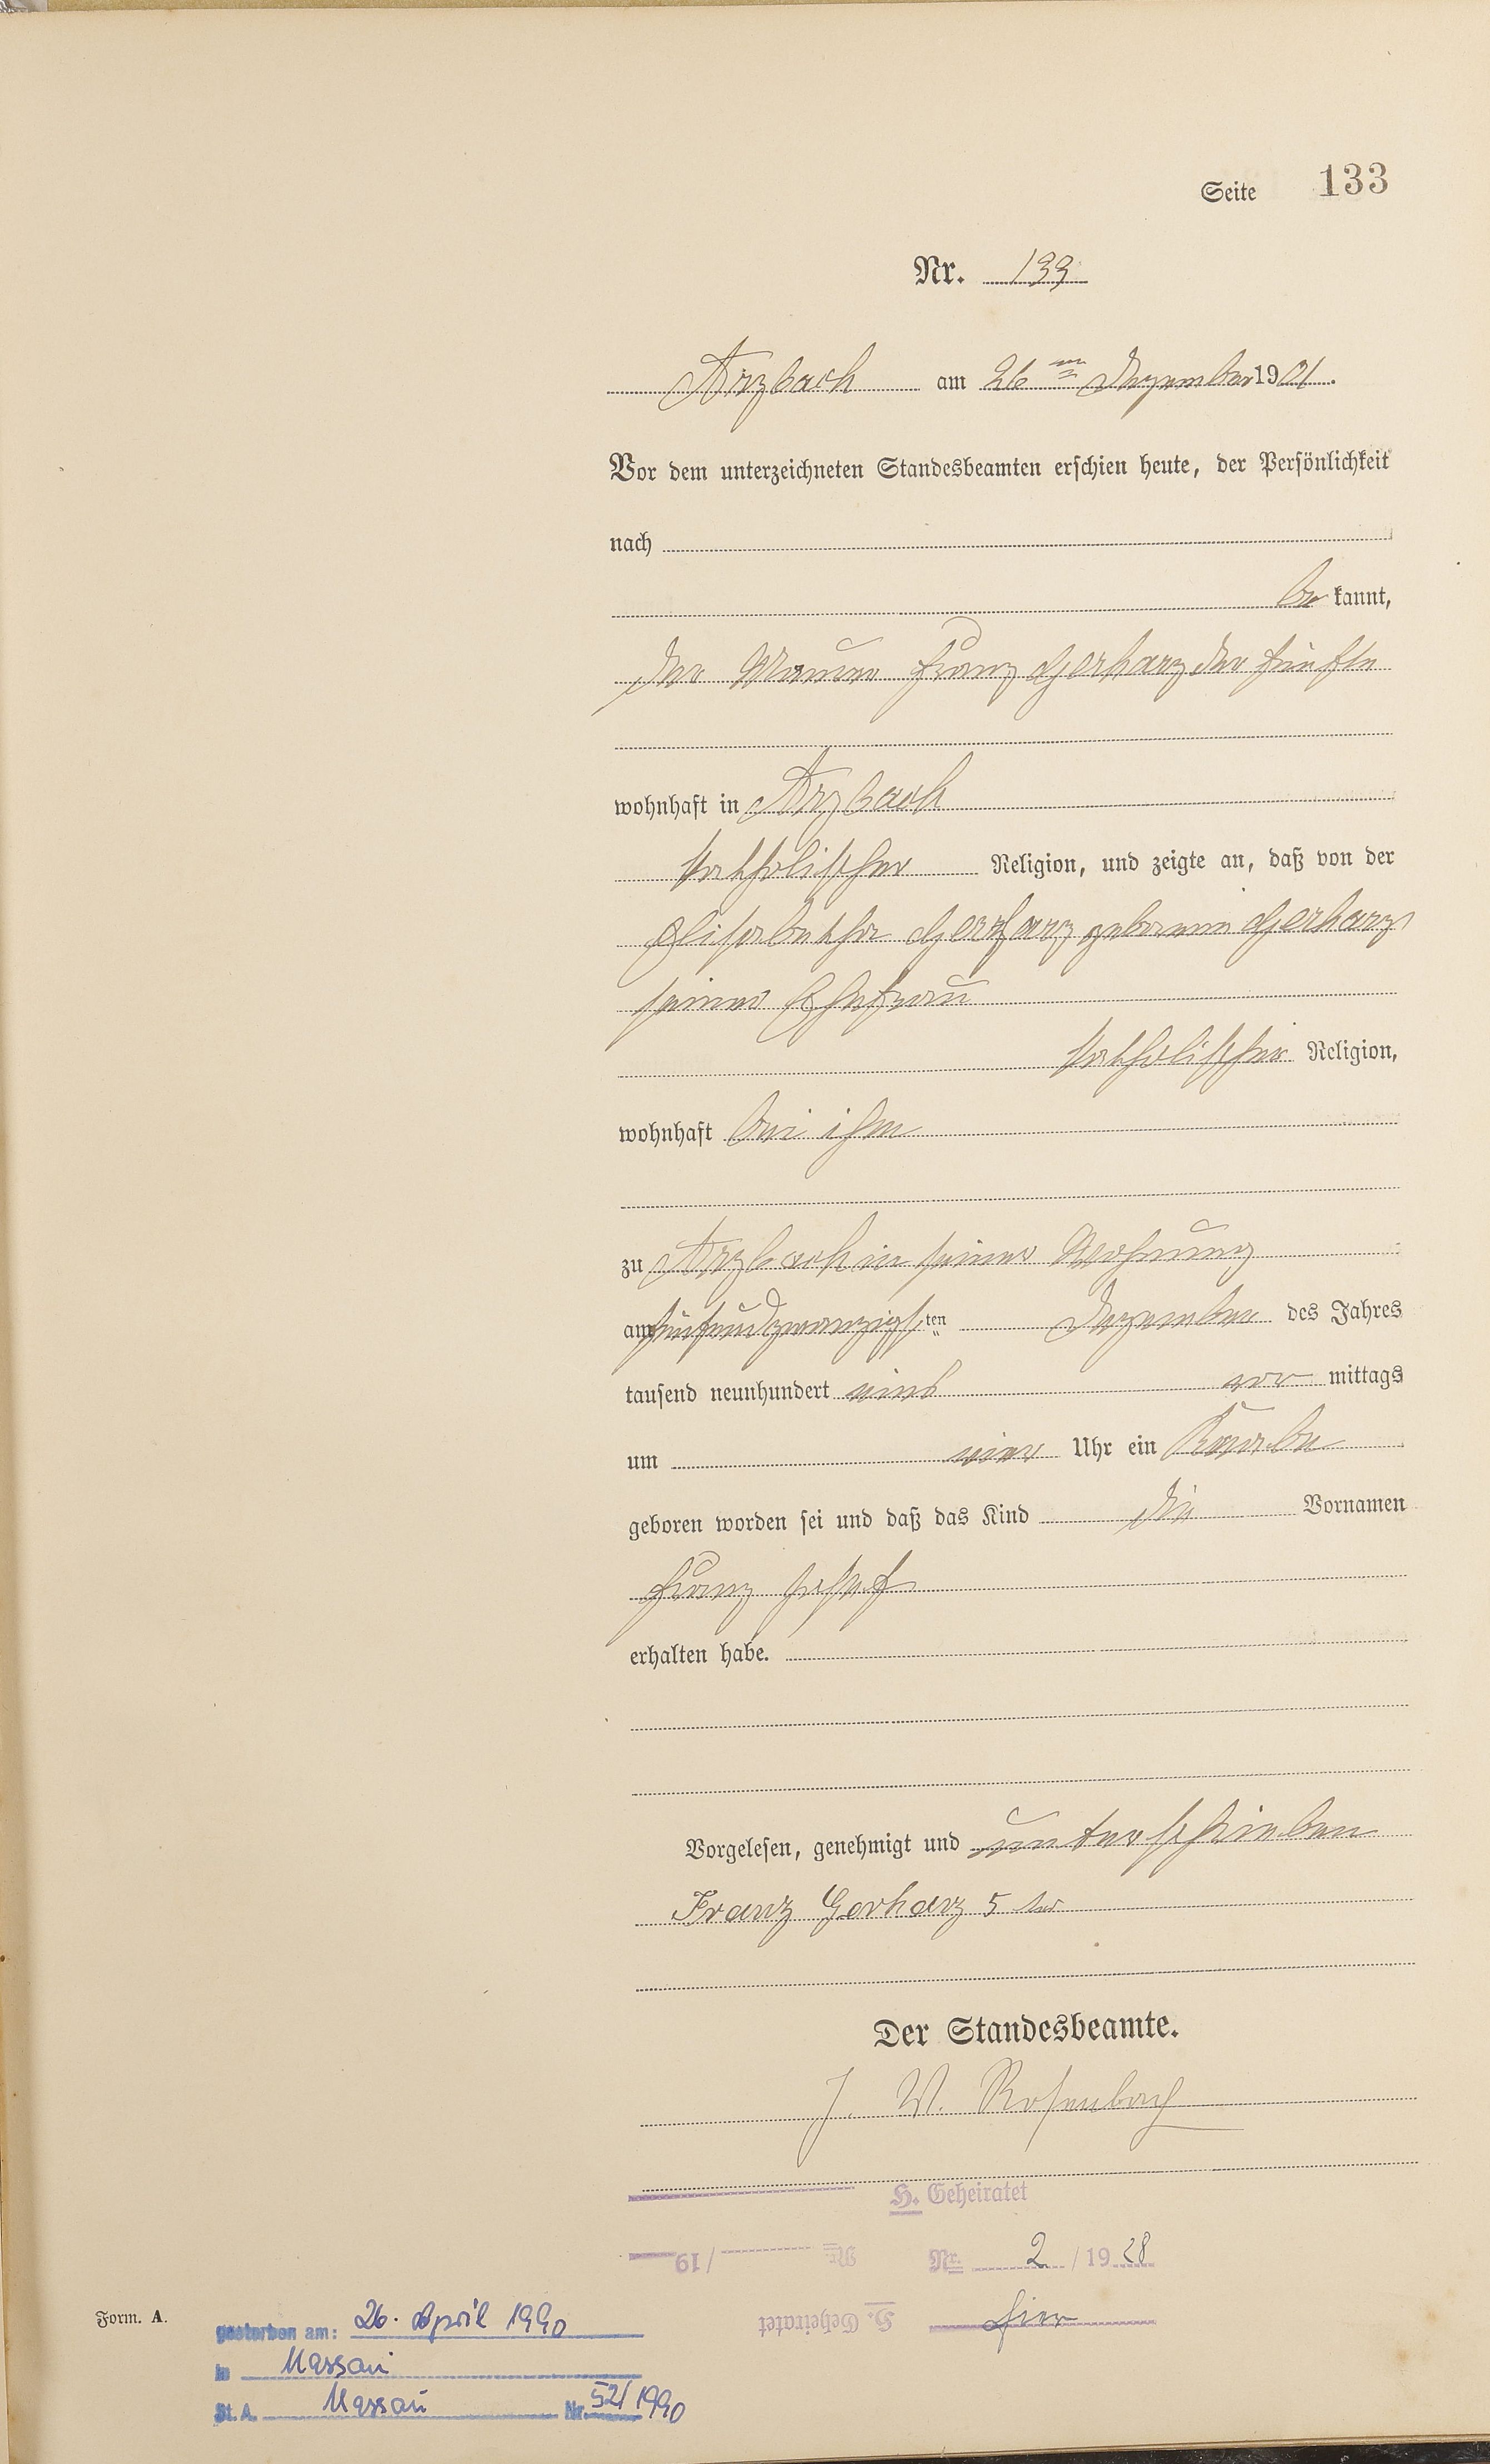 Seite 133
Nr. 133
Arzbach am 26ten Dezember 1901.
Vor dem unterzeichneten Standesbeamten erschien heute, der Persönlichkeit
nach
be kannt,
der Maurer Franz Gerharz der fünfte
wohnhaft in Arzbach
katholischer Religion, und zeigte an, daß von der
Elisabetha Gerharz geborene Gerharz,
seiner Ehefrau
katholischer Religion,
wohnhaft bei ihm
zu Arzbach in seiner Wohnung
am fünfundzwanzigsten Dezember des Jahres
tausend neunhundert eins vor mittags
um vier Uhr ein Knabe
geboren worden sei und daß das Kind die Vornamen
Franz Josef
erhalten habe.
Vorgelesen, genehmigt und unterschrieben
Franz Gerharz 5 ter
Der Standesbeamte.
J. W. Rosenbach
H. Geheiratet
Nr. /19
Nr. 2 / 19 28
H. Geheiratet
hier
Form. A.
gestorben am: 26. April 1990
in Nassau
St. A. Nassau Nr. 52/1990